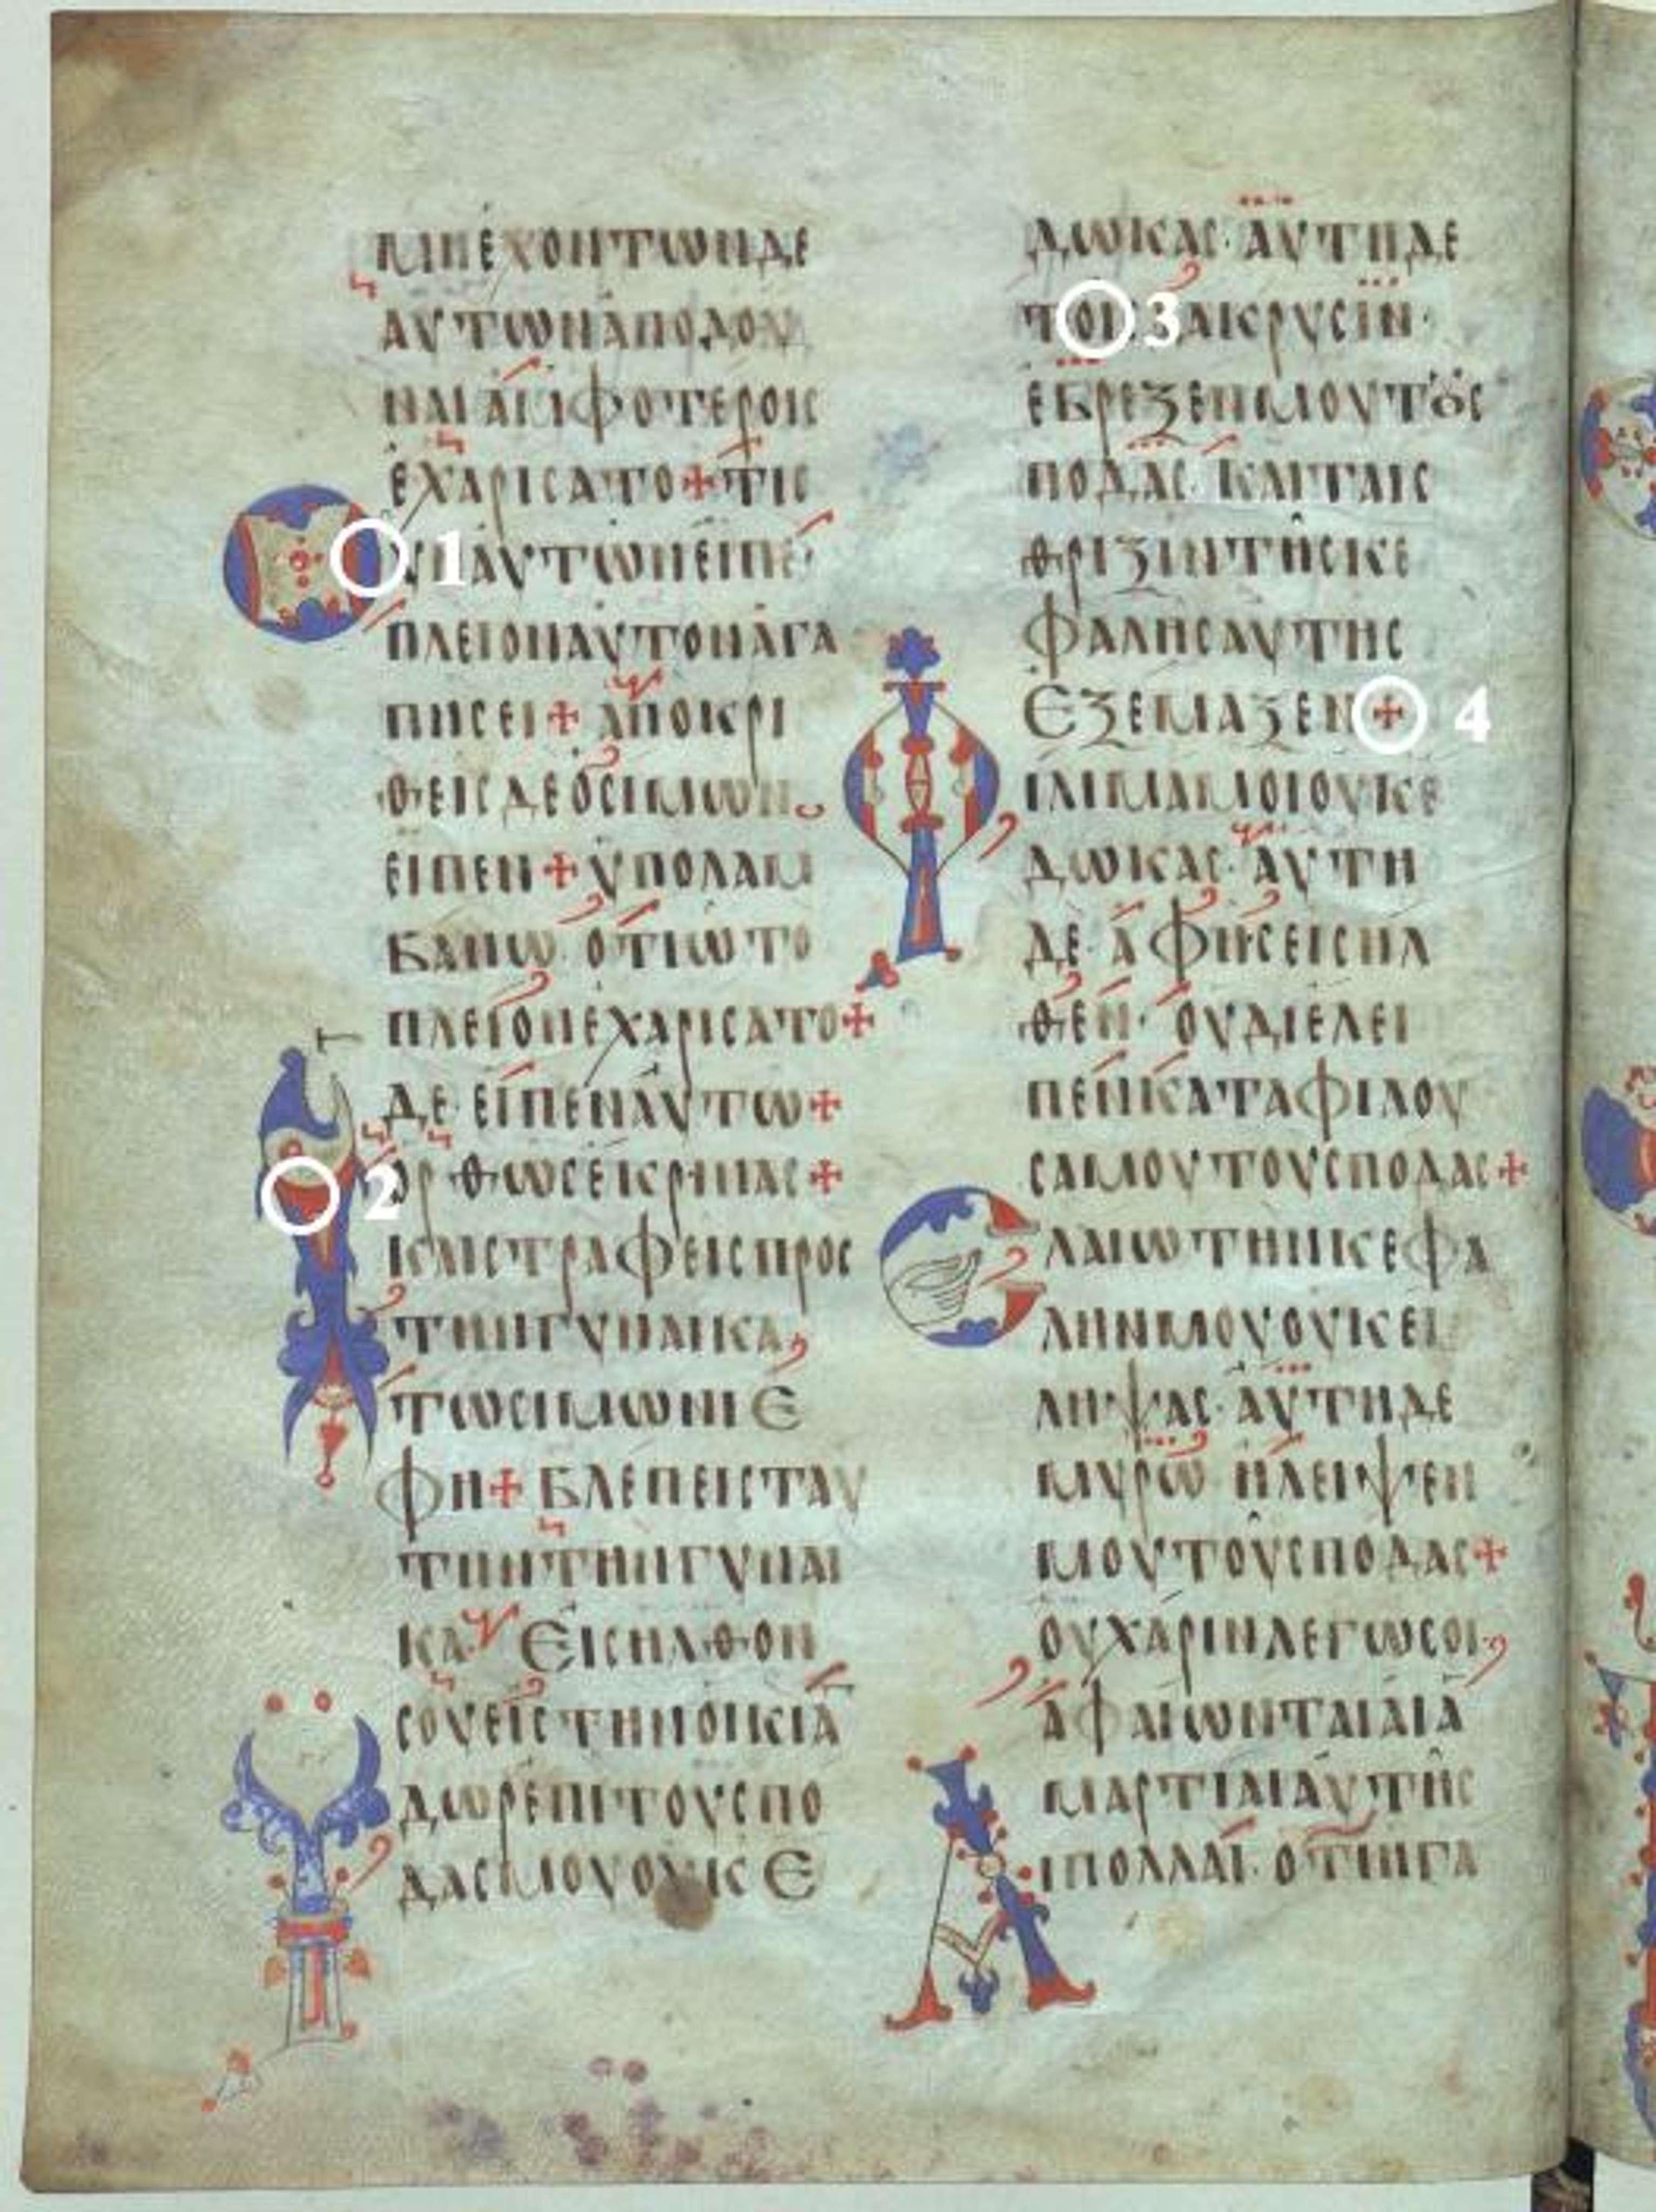 ΜΗΕΧΟΝΤΩΝΔΕ
ΑΥΤΩΝΑΠΟΔΟΥ
ΝΑΙΑΜΦΟΤΕΡΟΙϹ
ΕΧΑΡΙϹΑΤΟ+ΤΙϹ
ΟΥΝΑΥΤΩΝΕΙΠΕ
ΠΛΕΙΟΝΑΥΤΟΝΑΓΑ
ΠΗϹΕΙ+ΑΠΟΚΡΙ
ΘΕΙϹΔΕΟϹΙΜΩΝ
ΕΙΠΕΝ+ΥΠΟΛΑΜ
ΒΑΝΩ·ΟΤΙΩΤΟ
ΠΛΕΙΟΝΕΧΑΡΙϹΑΤΟ+
ΔΕ·ΕΙΠΕΝΑΥΤΩ+
ΟΡΘΩϹΕΚΡΙΝΑϹ+
ΚΑΙϹΤΡΑΦΕΙϹΠΡΟϹ
ΤΗΝΓΥΝΑΙΚΑ
ΤΩϹΙΜΩΝΙΕ
ΦΗ+ΒΛΕΠΕΙϹΤΑΥ
ΤΗΝΤΗΝΓΥΝΑΙ
ΚΑ·ΕΙϹΗΛΘΟΝ
ϹΟΥΕΙϹΤΗΝΟΙΚΙΑ
ΥΔΩΡΕΠΙΤΟΥϹΠΟ
ΔΑϹΜΟΥΟΥΚΕ
ΔΩΚΑϹ·ΑΥΤΗΔΕ
ΤΟΙϹΔΑΚΡΥϹΙΝ·
ΕΒΡΕΞΕΝΜΟΥΤΟΥϹ
ΠΟΔΑϹ·ΚΑΙΤΑΙϹ
ΘΡΙΞΙΝΤΗϹΚΕ
ΦΑΛΗϹΑΥΤΗϹ
ΕΞΕΜΑΞΕΝ+
ΦΙΛΗΜΑΜΟΙΟΥΚΕ
ΔΩΚΑϹ·ΑΥΤΗ
ΔΕ·ΑΦΗϹΕΙϹΗΛ
ΘΕΝ·ΟΥΔΙΕΛΕΙ
ΠΕΝΚΑΤΑΦΙΛΟΥ
ϹΑΜΟΥΤΟΥϹΠΟΔΑϹ+
ΕΛΑΙΩΤΗΝΚΕΦΑ
ΛΗΝΜΟΥΟΥΚΕΙ
ΛΗΨΑϹ·ΑΥΤΗΔΕ
ΜΥΡΩΗΛΕΙΨΕΝ
ΜΟΥΤΟΥϹΠΟΔΑϹ+
ΟΥΧΑΡΙΝΛΕΓΩϹΟΙ·
ΑΦΑΙΩΝΤΑΙΑΙΑ
ΜΑΡΤΙΑΙΑΥΤΗϹ
ΑΙΠΟΛΛΑΙ·ΟΤΙΗΓΑ
1
2
3
4